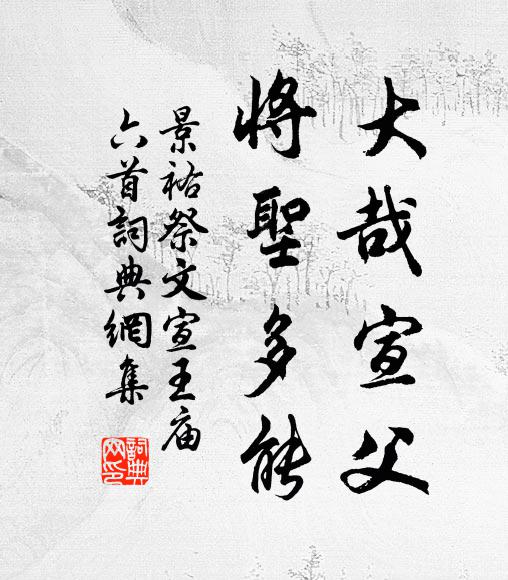 大哉宣父
將聖多能
景祐祭文宣王庙
六首詞典網集
詞典
网印